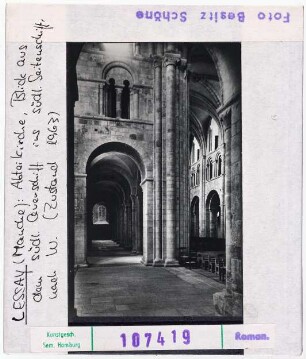 Foto Besitz Schöne
LESSAY (Manche): Abteikirche, Blick aus
dem südl. Querschiff ins südl. Seitenschiff,
nach W. (Zustand 1963)
Kunstgesch.
Sem. Hamburg
107419
Roman.